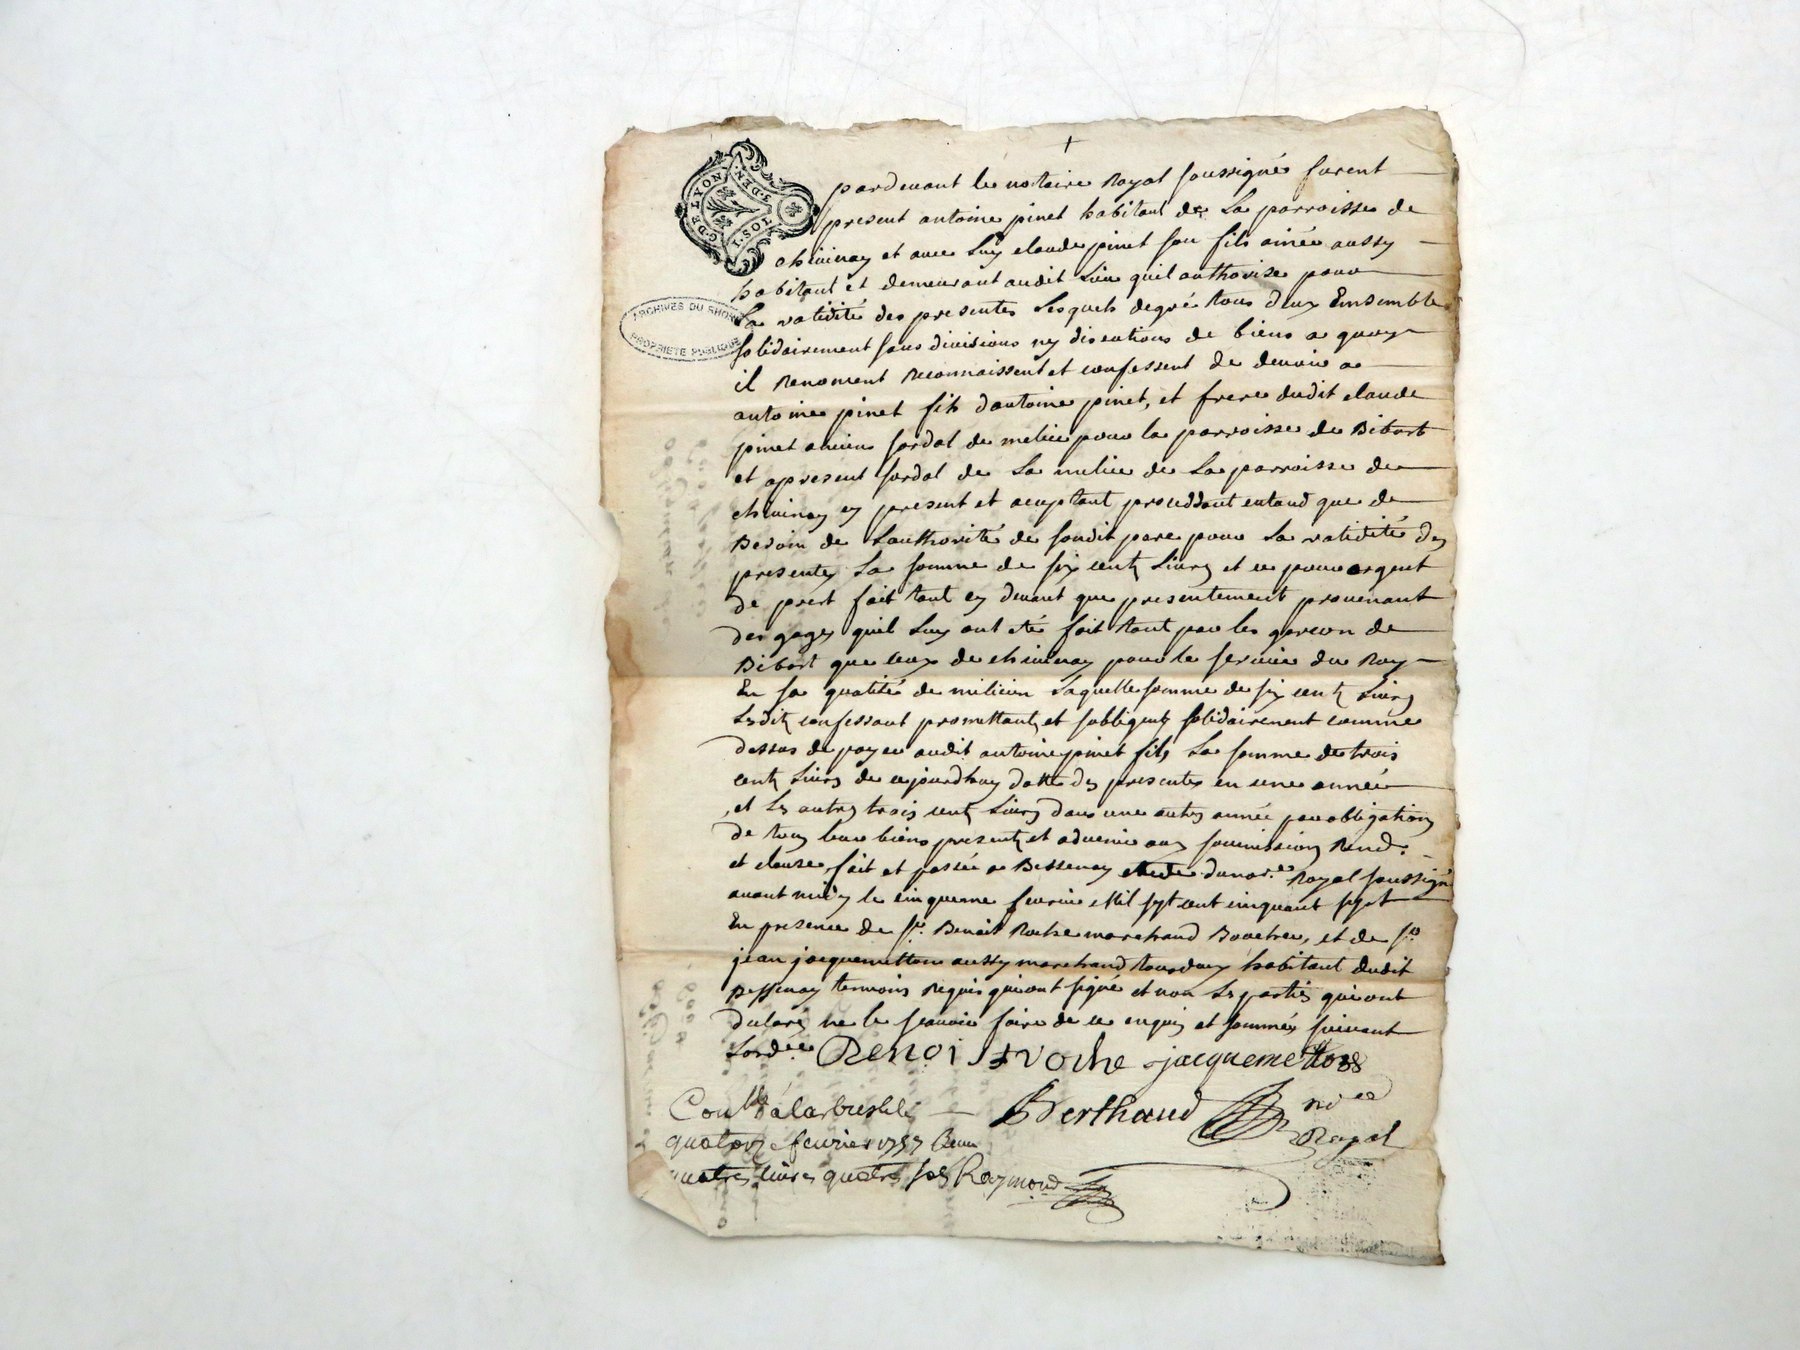 +
G. DE LYON
S. DEN.
I. SOL
ARCHIVES DU RHONE
PROPRIETE PUBLIQUE
pardevant le notaire Royal soussigné furent
present antoine pinet habitant de La parroisse de
chivinay et avec Luy claude pinet son fils ainée aussy
habitant et demeurant audit Lieu quil authorise pour
La validité des presentes Lesquels degré tous deux Ensemble
solidairement sans divisions ny discutions de biens a quoy
il Renoncent Reconnaissent et confessent de devoir a
antoine pinet fils dantoine pinet, et frere dudit claude
pinet ancien sordal de melice pour la parroisse de Bibost
et apresent sordal de La melice de La parroisse de
chivinay cy present et acceptant proceddant entand que de
Besoin de Lauthorité de sondit pere pour La validité des
presentes La somme de six cents Livres et ce pour argent
de prest fait tant cy devant que presentement provenant
des gages quil Luy ont eté fait tant par les garcon de
Bibost que ceux de chivinay pour le service du Roy
En sa qualité de milicien Laquelle somme de six cents Livres
Lesdits confessant promettants et sobligents solidairement comme
dessus de payer audit antoine pinet fils La somme de trois
cents Livres de cejourdhuy datte des presentes en une année
et Les autres trois cents Livres dans une autres année par obligations
de tous leurs biens presents et advenir aux soumissions Rend.
et clause, fait et passée a Bessenay etude dunore Royal soussigné
avant midy le cinquieme fevrier Mil sept cent cinquant sept
En presence de sr. Benoit Roche marchand Boucher, et de sr.
jean jacquemetton aussy marchand habitant dudit
Bessenay temoins Requis qui ont signé et non Les parties qui ont
declaré ne le scavoir faire de ce enquis et sommés suivant
Lordce. Benoit roche jacquemetton
Conllé a larbresle Berthaud nore
quatorze fevrier 1757 Recu Royal
quatres livres quatres sols Raymond